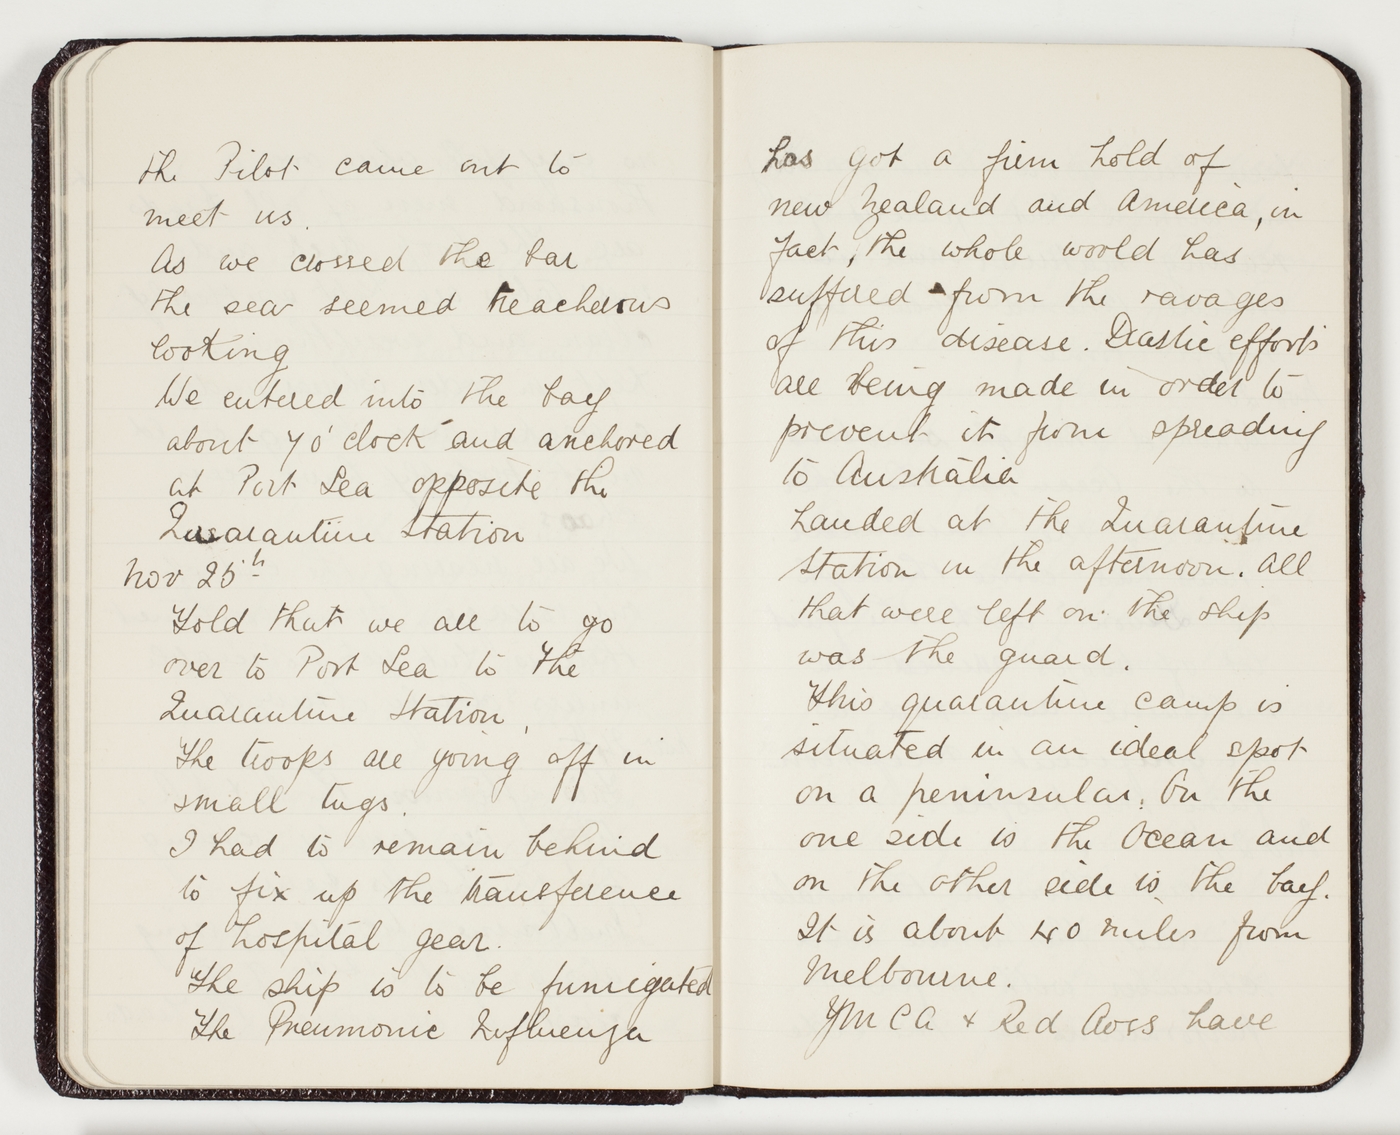 the Pilot came out to
meet us.
As we crossed the bar
the sea seemed treacherous
looking
We entered into the bay
about 7 o'clock and anchored
at Port Sea opposite the
Quarantine Station
Nov 25th
Told that we are to go
over to Port Sea to the
Quarantine Station.
The troops are going off in
small tugs.
I had to remain behind
to fix up the transference
of hospital gear.
The ship is to be fumigated
The Pneumonic Influenza
has got a firm hold of
new Zealand and America, in
fact, the whole world has
suffered from the ravages
of this disease. Drastic efforts
are being made in order to
prevent it from spreading
to Australia
Landed at the Quarantine
Station in the afternoon. All
that were left on the ship
was the guard.
This quarantine camp is
situated in an ideal spot
on a peninsular. On the
one side is the Ocean and
on the other side is the bay.
It is about 40 miles from
Melbourne.
YMCA + Red Cross have